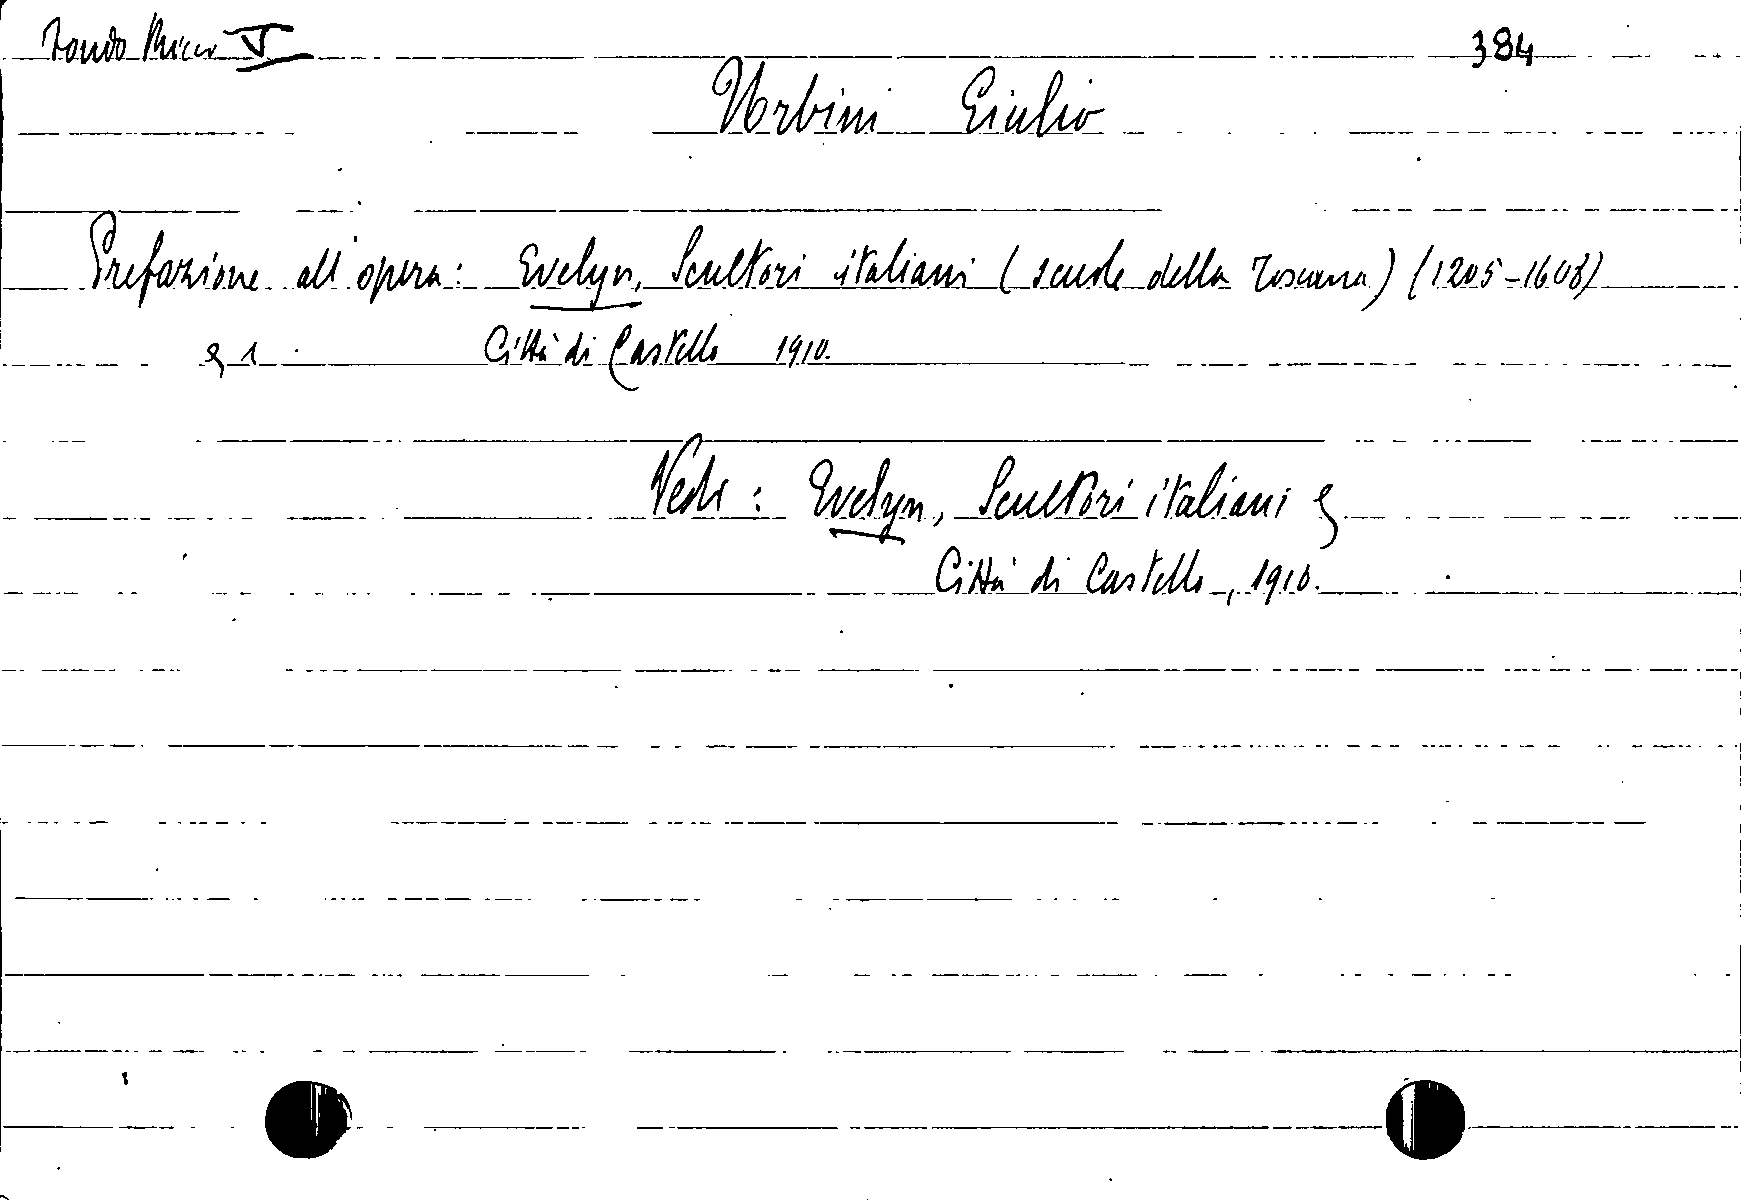 Fondo Ricci V 384
Urbini Giulio
Prefazione all'opera: Evelyn, Scultori italiani (scuole della Toscana) (1205-1608)
& 1 Città di Castello 1910.
Vedi: Evelyn, Scultori italiani &
Città di Castello, 1910.